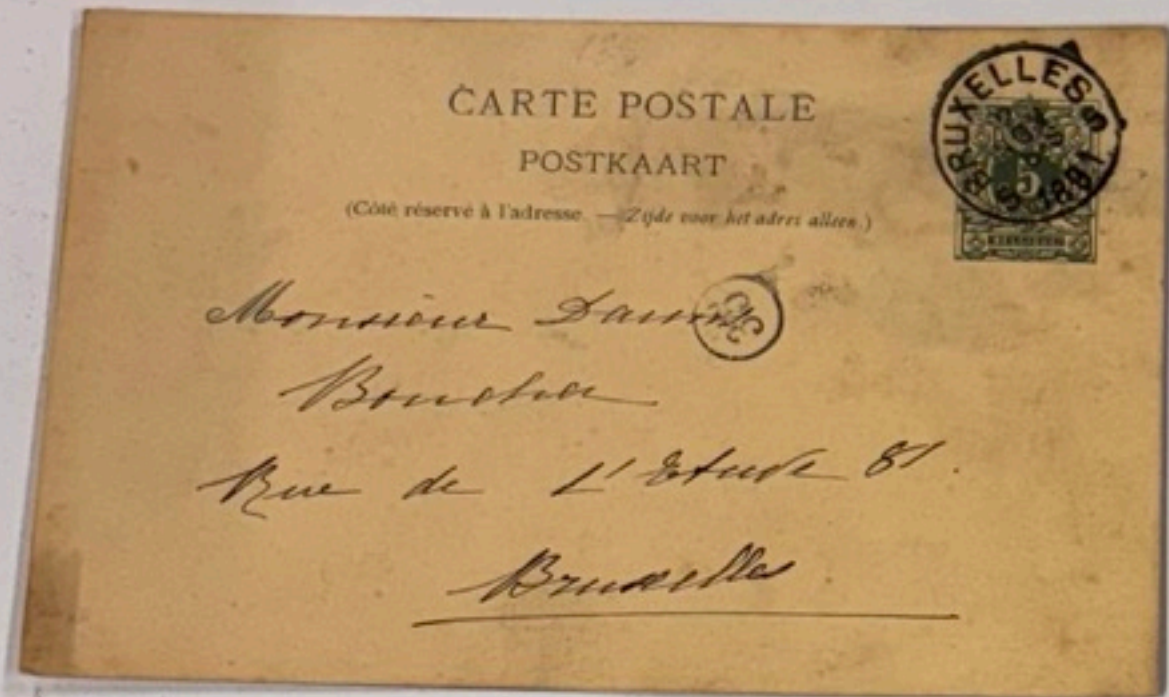 CARTE POSTALE
POSTKAART
(Côté réservé à l'adresse. — Zijde voor het adres alleen.)
BRUXELLES
1891
5
Monsieur
Rue de L'Etuve 81.
Bruxelles